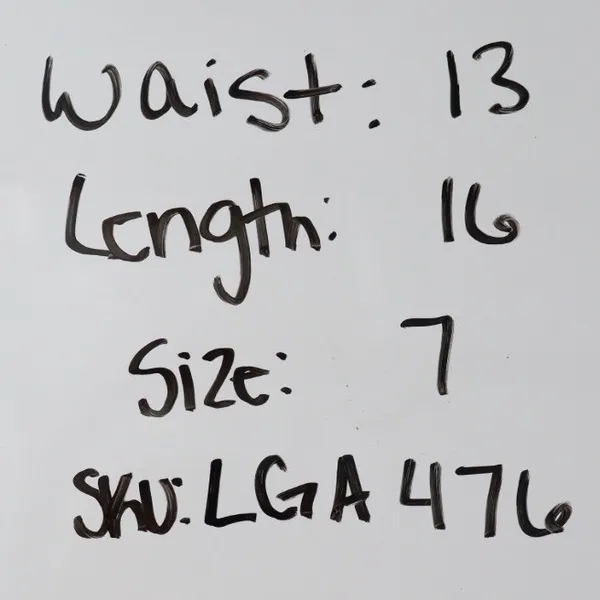 Waist: 13
Length: 16
Size: 7
SKU: LGA 476